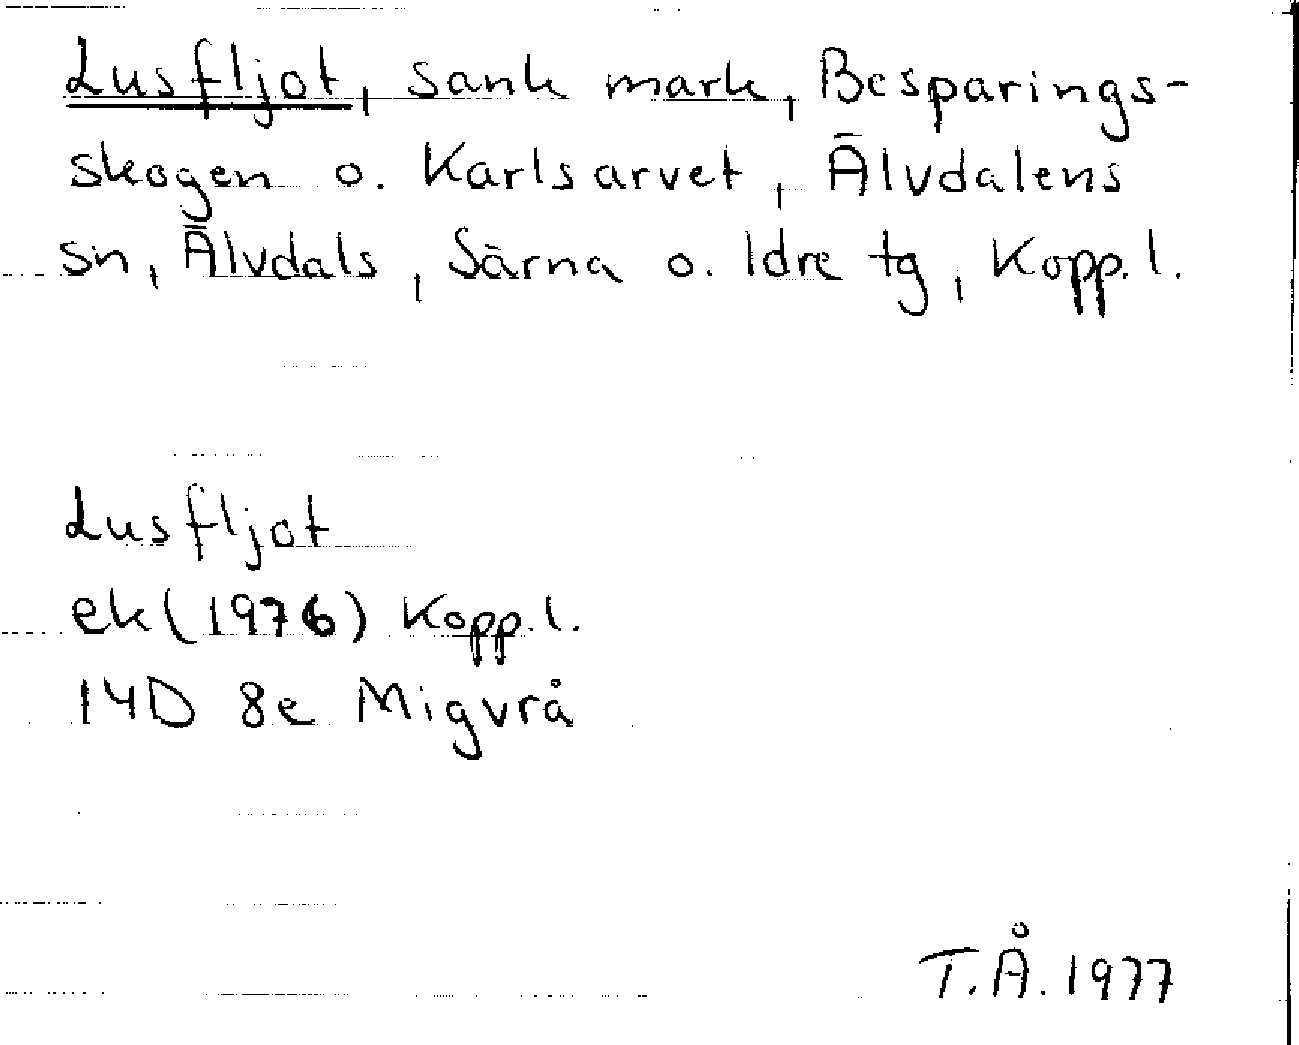 Lusfljot, sank mark, Besparings-
skogen o. Karlsarvet, Älvdalens
sn, Älvdals, Särna o. Idre tg, Kopp. l.
Lusfljot
ek (1976) Kopp. l.
14D 8e Migvrå
T. Å. 1977